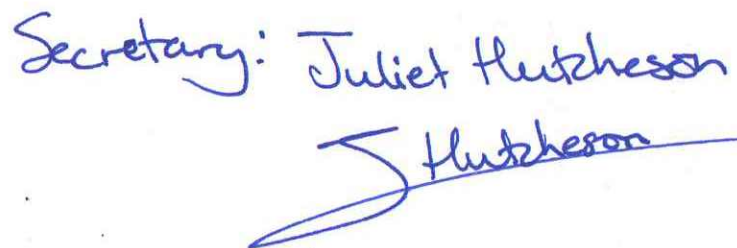 Secretary: Juliet Hutcheson
J Hutcheson